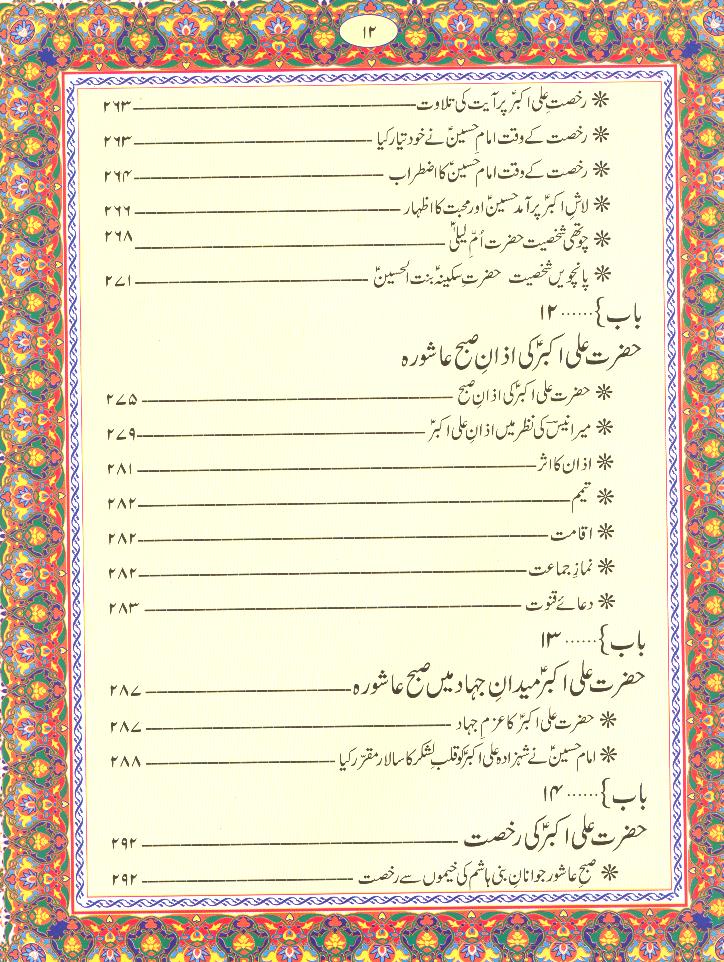 ۱۲
❋ رخصتِ علی اکبرؑ پر آیت کی تلاوت ۲۶۳
❋ رخصت کے وقت امام حسینؑ نے خود تیار کیا ۲۶۳
❋ رخصت کے وقت امام حسینؑ کا اضطراب ۲۶۴
❋ لاشِ اکبرؑ پر آمدِ حسینؑ اور محبت کا اظہار ۲۶۶
❋ چوتھی شخصیت حضرت اُمّ لیلیٰؑ ۲۶۸
❋ پانچویں شخصیت حضرت سکینہؑ بنت الحسینؑ ۲۷۱
باب } ...... ۱۲
حضرت علی اکبرؑ کی اذانِ صبح عاشورہ
❋ حضرت علی اکبرؑ کی اذانِ صبح ۲۷۵
❋ میر انیسؔ کی نظر میں اذانِ علی اکبرؑ ۲۷۹
❋ اذان کا اثر ۲۸۱
❋ تیمم ۲۸۲
❋ اقامت ۲۸۲
❋ نمازِ جماعت ۲۸۲
❋ دعائے قنوت ۲۸۳
باب } ...... ۱۳
حضرت علی اکبرؑ میدانِ جہاد میں صبح عاشورہ ۲۸۷
❋ حضرت علی اکبرؑ کا عزمِ جہاد ۲۸۷
❋ امام حسینؑ نے شہزادہ علی اکبرؑ کو قلبِ لشکر کا سالار مقرّر کیا ۲۸۸
باب } ...... ۱۴
حضرت علی اکبرؑ کی رخصت ۲۹۲
❋ صبح عاشور جوانانِ بنی ہاشم کی خیموں سے رخصت ۲۹۲